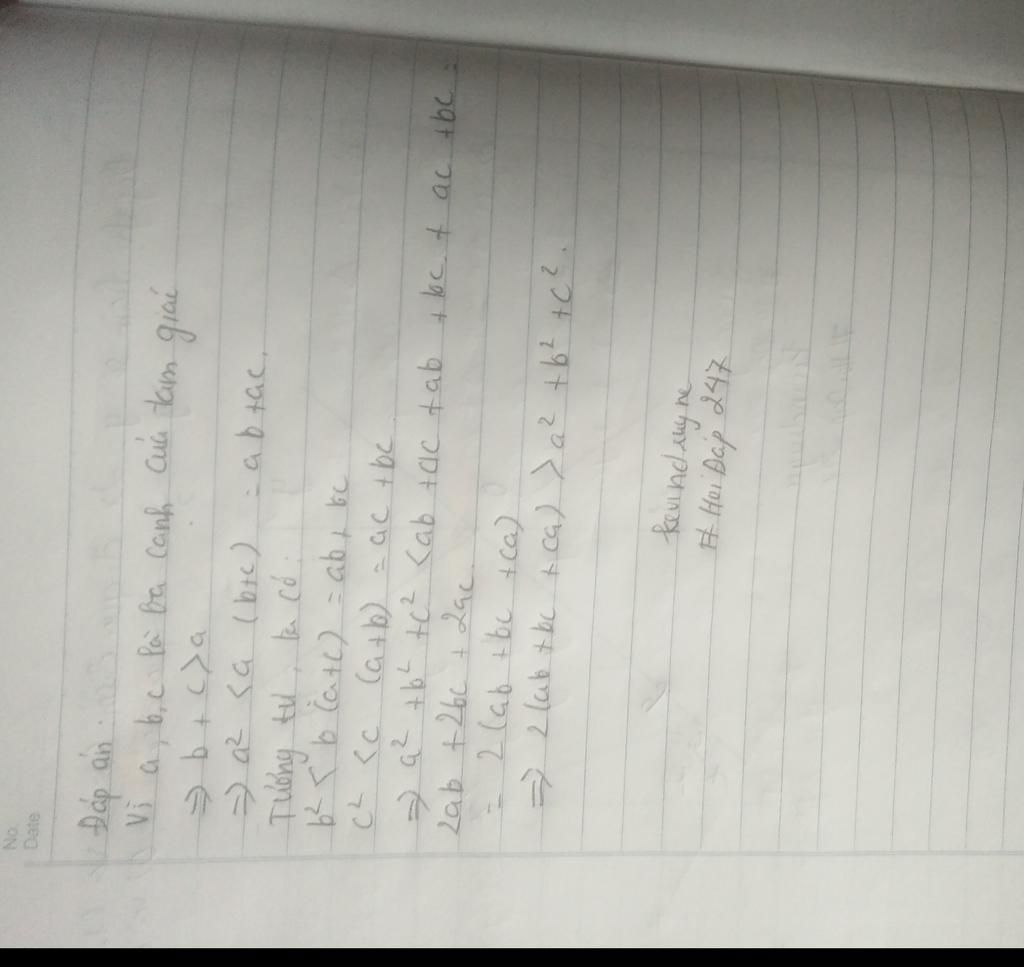 No.
Date
Đáp án
Vì a, b, c là ba cạnh của tam giác
=> b + c > a
=> a² < a (b+c) = ab + ac.
Tương tự, ta có:
b² < b (a+c) = ab + bc
c² < c (a+b) = ac + bc
=> a² + b² + c² < ab + ac + ab + bc + ac + bc =
2ab + 2bc + 2ac
= 2(ab + bc + ca)
=> 2(ab + bc + ca) > a² + b² + c².
# Hoi Đáp 247